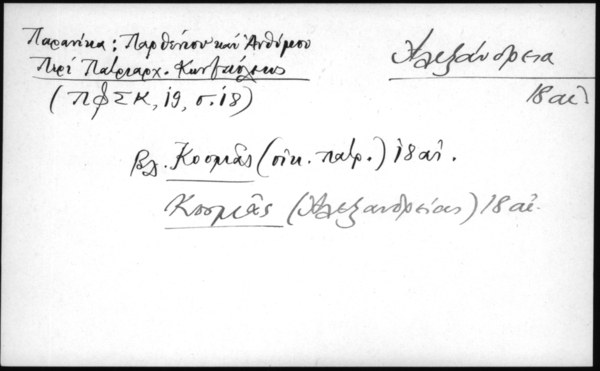 Παρανίκα: Παρθενίου καὶ Ἀνθίμου
Περὶ Πατριαρχ. Κων/πόλεως
(ΠΦΣΚ, 19, σ. 18)
Ἀλεξάνδρεια
18 αἰ
βλ. Κοσμᾶς (οἰκ. πατρ.) 18 αἰ.
Κοσμᾶς (Ἀλεξανδρείας) 18 αἰ.